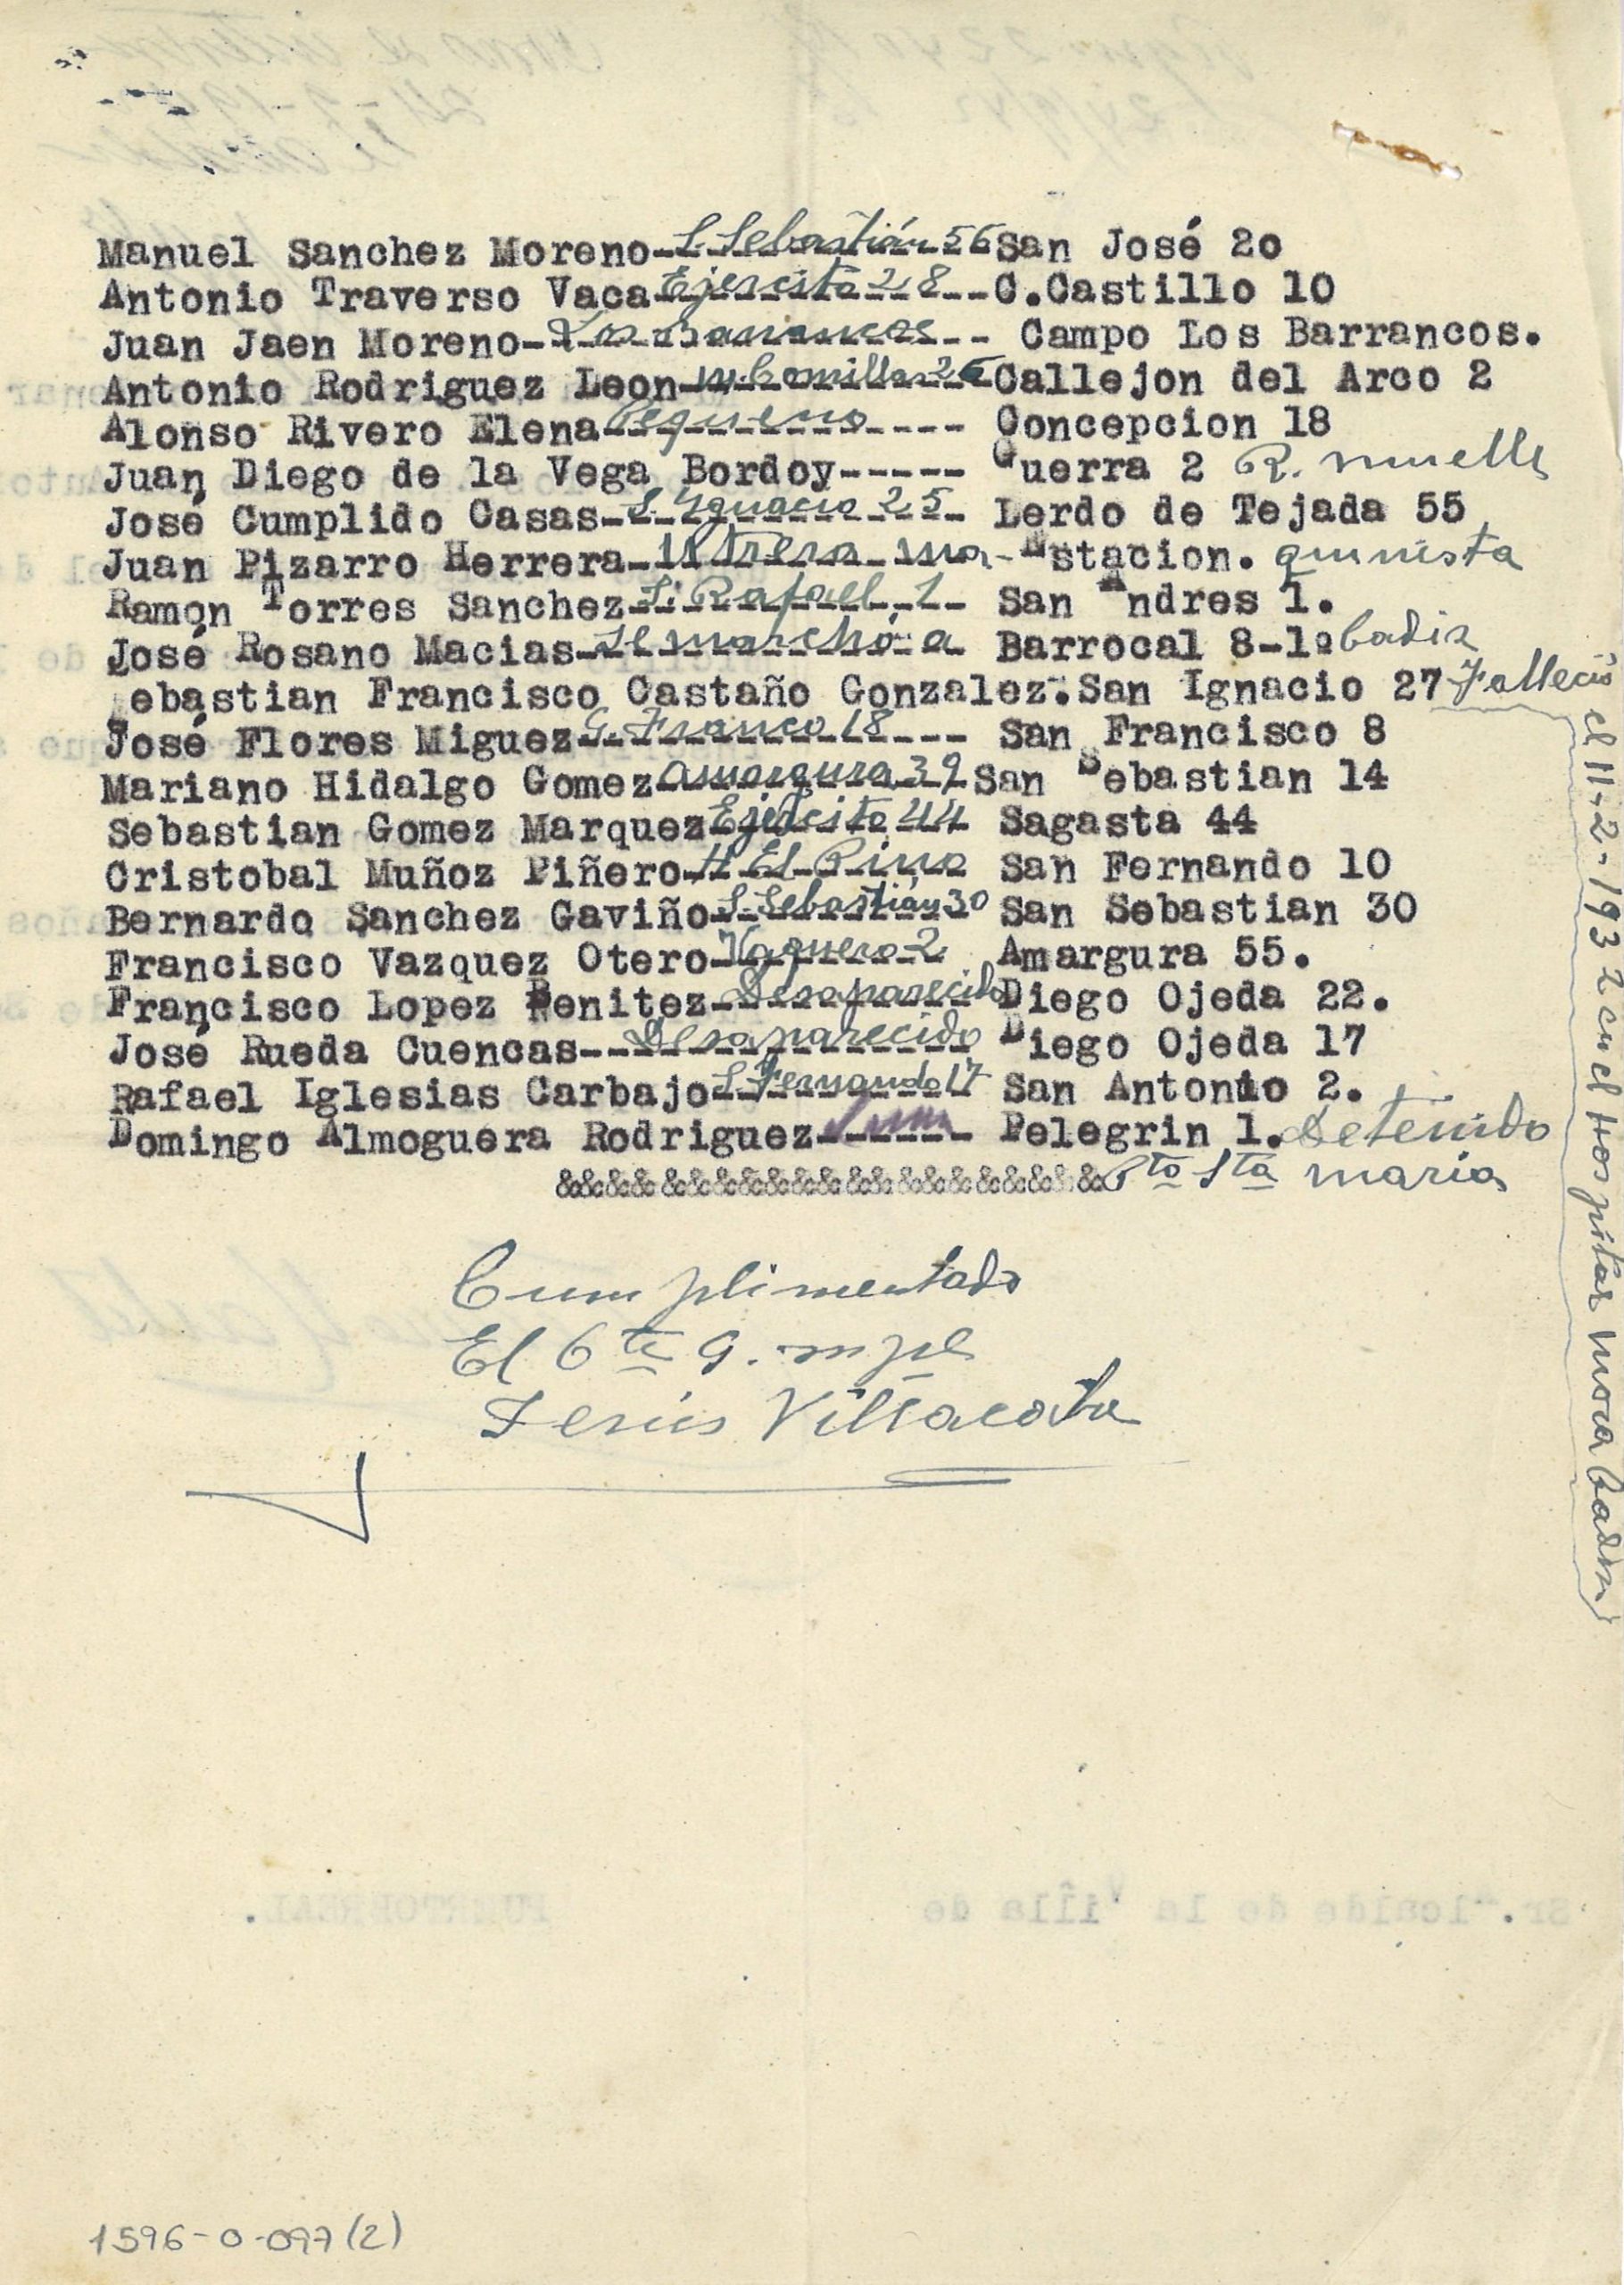 Manuel Sanchez Moreno- S. Sebastián 56 San José 2o
Antonio Traverso Vaca Ejercito 28 --C.Castillo 10
Juan Jaen Moreno- Los Barrancos -- Campo Los Barrancos.
Antonio Rodriguez Leon- M. Comillas 26 Callejon del Arco 2
Alonso Rivero Elena Pequeno ---- Concepcion 18
Juan Diego de la Vega Bordoy----- Guerra 2 R. muelle
José Cumplido Casas- S. Ygnacio 25 - Lerdo de Tejada 55
Juan Pizarro Herrera- Utrera - Estacion.
Ramon Torres Sanchez S. Rafael 1 - San Andres 1.
José Rosano Macias- se marchó a Barrocal 8-1º Cadiz
Sebastian Francisco Castaño Gonzalez.San Ignacio 27 Fallecio
el 11-2-1932 en el Hospital mora Cadiz
José Flores Miguez G. Franco 18 --- San Francisco 8
Mariano Hidalgo Gomez amargura 39 San Sebastian 14
Sebastian Gomez Marquez Ejercito 44 Sagasta 44
Cristobal Muñoz Piñero- H El Pino San Fernando 10
Bernardo Sanchez Gaviño S. Sebastián 30 San Sebastian 30
Francisco Vazquez Otero- Vaquero 2 Amargura 55.
Francisco Lopez Benitez- Desaparecido Diego Ojeda 22.
José Rueda Cuencas-- Desaparecido Diego Ojeda 17
Rafael Iglesias Carbajo S. Fernando 17 San Antonio 2.
Domingo Almoguera Rodriguez------ Pelegrin 1. Detenido
&&&&&&&&&&&&&&&&&&&&& Pto Sta maria
Cumplimentado
El G. mpl
Jesús Villacorta
Sr. Alcalde de la Villa de PUERTO REAL.
1596-0-097(2)